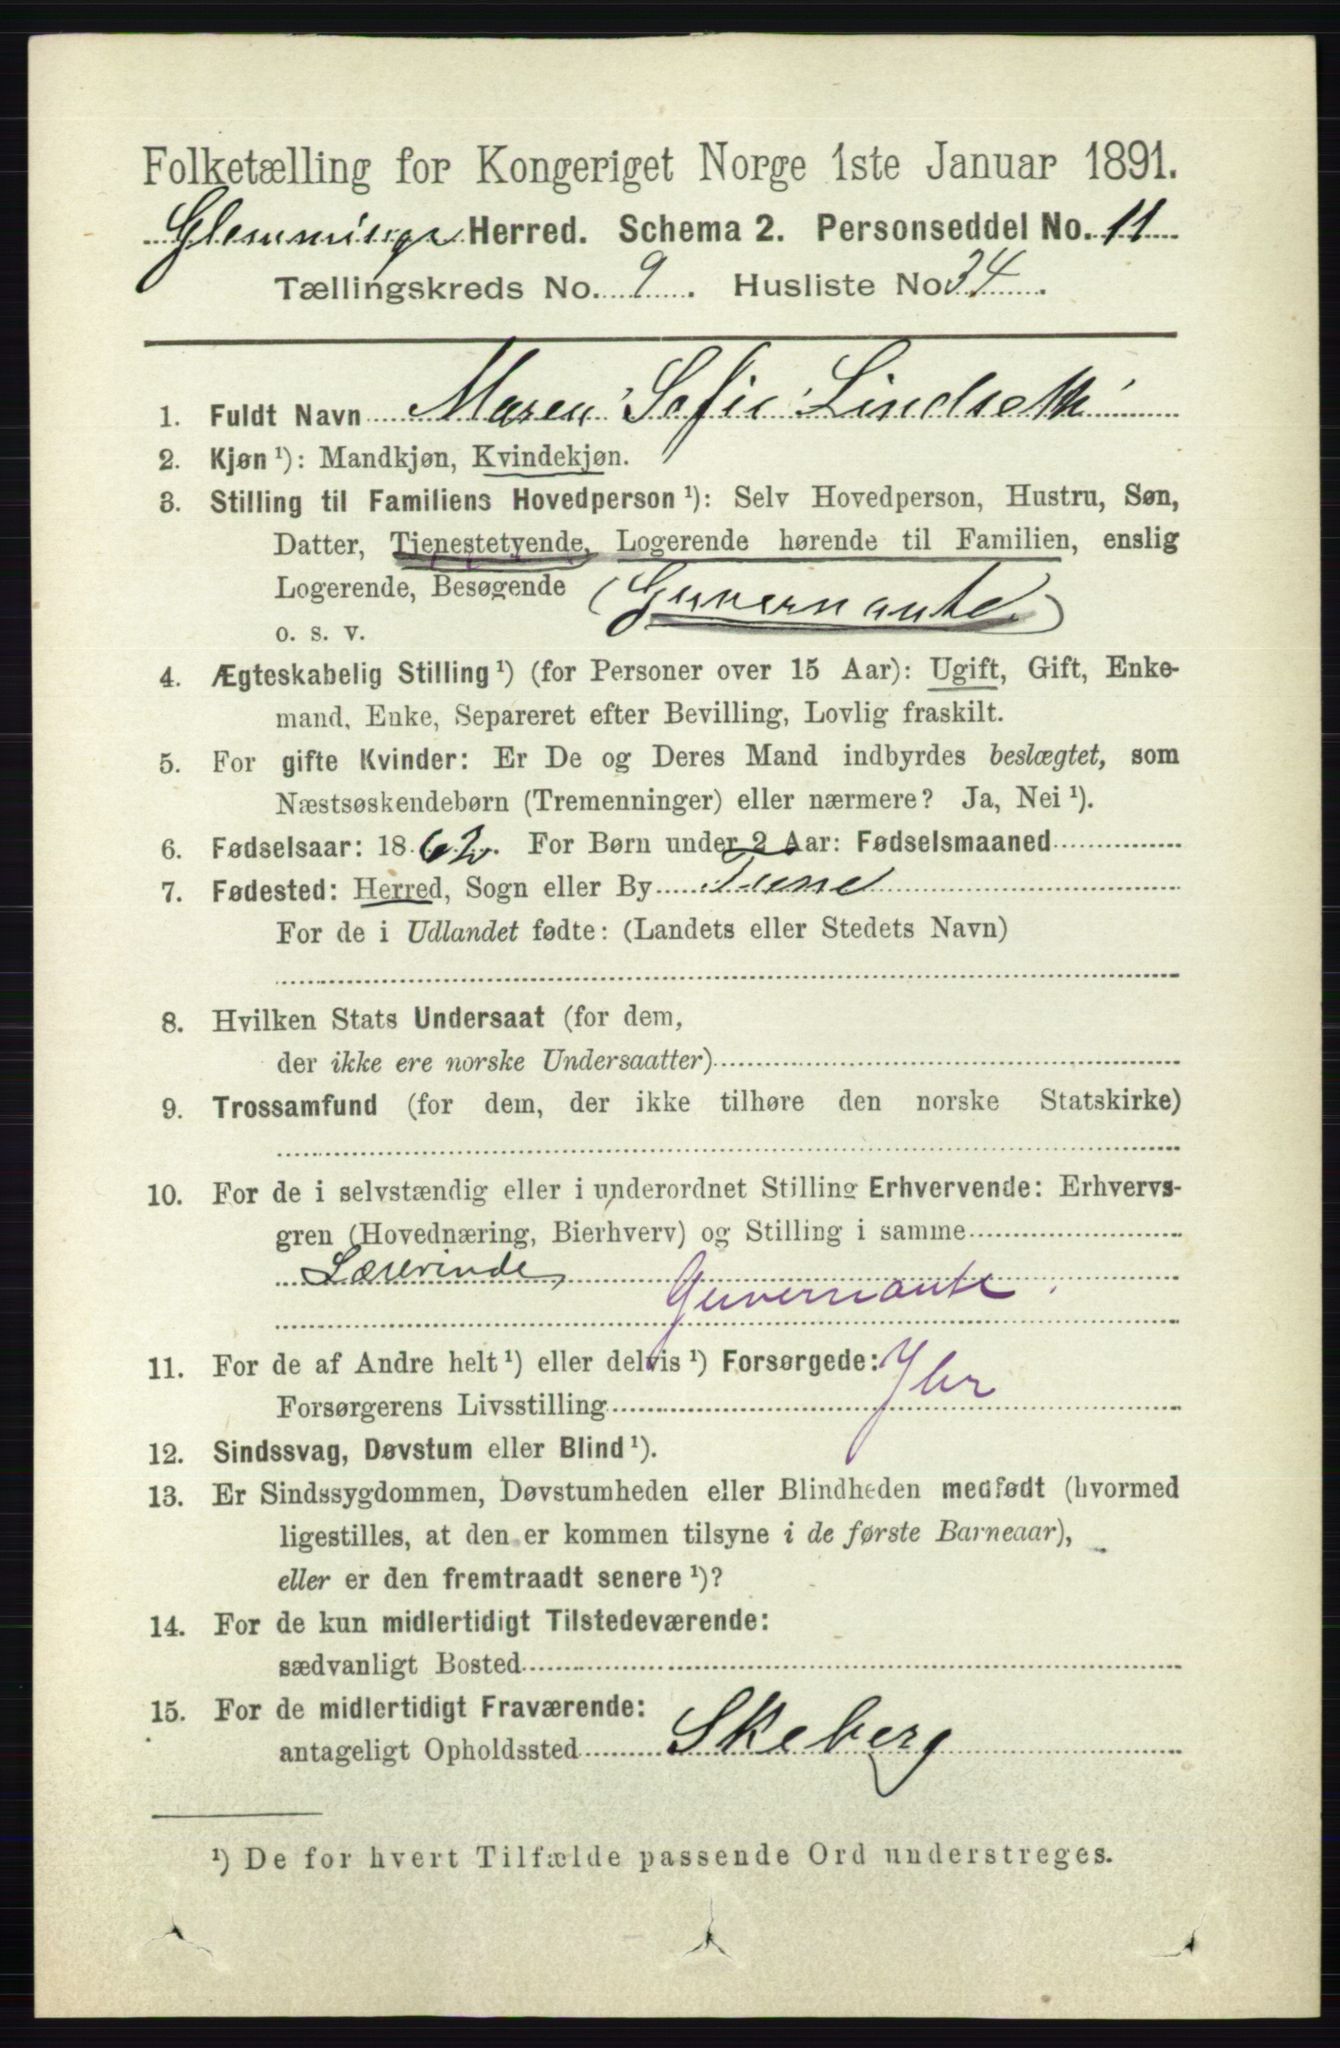 Folketælling for Kongeriget Norge 1ste Januar 1891.
Glemminge Herred. Schema 2. Personseddel No. 11
Tællingskreds No. 9. Husliste No 34.
1. Fuldt Navn Maren Sofie Lindseth
2. Kjøn ¹): Mandkjøn, Kvindekjøn.
3. Stilling til Familiens Hovedperson ¹): Selv Hovedperson, Hustru, Søn,
Datter, Tjenestetyende, Logerende hørende til Familien, enslig
Logerende, Besøgende (Guvernante)
o. s. v.
4. Ægteskabelig Stilling ¹) (for Personer over 15 Aar): Ugift, Gift, Enke-
mand, Enke, Separeret efter Bevilling, Lovlig fraskilt.
5. For gifte Kvinder: Er De og Deres Mand indbyrdes beslægtet, som
Næstsøskendebørn (Tremenninger) eller nærmere? Ja, Nei ¹).
6. Fødselsaar: 1862. For Børn under 2 Aar: Fødselsmaaned
7. Fødested: Herred, Sogn eller By Tune
For de i Udlandet fødte: (Landets eller Stedets Navn)
8. Hvilken Stats Undersaat (for dem,
der ikke ere norske Undersaatter)
9. Trossamfund (for dem, der ikke tilhøre den norske Statskirke)
10. For de i selvstændig eller i underordnet Stilling Erhvervende: Erhvervs-
gren (Hovednæring, Bierhverv) og Stilling i samme
Lærerinde,
Guvernante.
11. For de af Andre helt ¹) eller delvis ¹) Forsørgede:
Forsørgerens Livsstilling
12. Sindssvag, Døvstum eller Blind ¹).
13. Er Sindssygdommen, Døvstumheden eller Blindheden medfødt (hvormed
ligestilles, at den er kommen tilsyne i de første Barneaar),
eller er den fremtraadt senere ¹)?
14. For de kun midlertidigt Tilstedeværende:
sædvanligt Bosted
15. For de midlertidigt Fraværende:
antageligt Opholdssted Skeberg
¹) De for hvert Tilfælde passende Ord understreges.